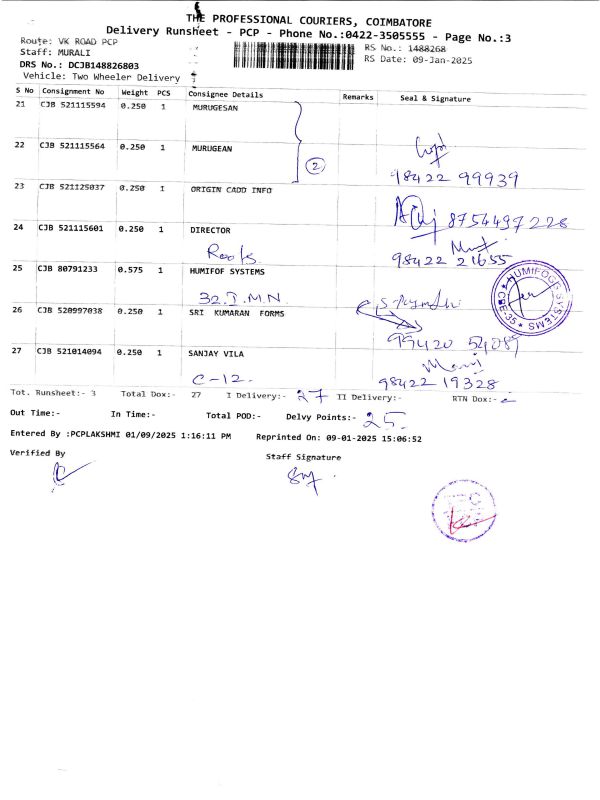 THE PROFESSIONAL COURIERS, COIMBATORE
Delivery Runsheet - PCP - Phone No.:0422-3505555 - Page No.:3
Route: VK ROAD PCP
RS No.: 1488268
Staff: MURALI
RS Date: 09-Jan-2025
DRS No.: DCJB148826803
Vehicle: Two Wheeler Delivery
S No Consignment No Weight PCS Consignee Details Remarks Seal & Signature
21 CJB 521115594 0.250 1 MURUGESAN
22 CJB 521115564 0.250 1 MURUGEAN
2
98422 99939
23 CJB 521125037 0.250 1 ORIGIN CADD INFO
8754497228
24 CJB 521115601 0.250 1 DIRECTOR
Roots.
98422 21655
25 CJB 80791233 0.575 1 HUMIFOF SYSTEMS
HUMIFOG SYSTEMS
CBE-35
32.I.M.N.
26 CJB 520997038 0.250 1 SRI KUMARAN FORMS
99420 54089
27 CJB 521014094 0.250 1 SANJAY VILA
Mani
C-12.
98422 19328
Tot. Runsheet:- 3 Total Dox:- 27 I Delivery:- 27 II Delivery:- RTN Dox:-
Out Time:- In Time:- Total POD:- Delvy Points:- 25.
Entered By :PCPLAKSHMI 01/09/2025 1:16:11 PM Reprinted On: 09-01-2025 15:06:52
Verified By
Staff Signature